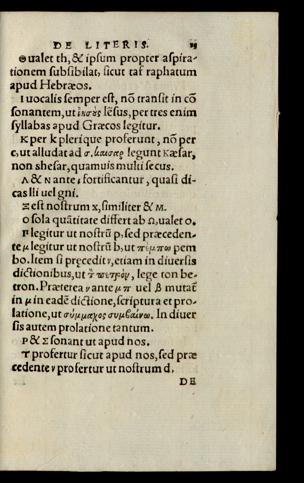 DE LITERIS.
Θ ualet th, & ipsum propter aspira-
tionem subsibilat, sicut raphatum
apud Hebræos.
I uocalis semper est, nō transit in cō
sonantem, ut ἰησοῦς Iēsus, per tres enim
syllabas apud Græcos legitur.
K per k plerique proferunt, nō per
c, ut alludat ad καισαρ legunt Kæsar,
non shesar, quamuis multi secus.
Λ & N ante ι fortificantur, quasi di-
cas lli uel gni.
Ξ est nostrum x, similiter & M.
O sola quātitate differt ab Ω, ualet o.
Π legitur ut nostrū p, sed præceden-
te μ legitur ut nostrū b, ut πέμπω pem
bo. Item si præcedit ν, etiam in diuersis
dictionibus, ut πέτρον, lege ton be-
tron. Præterea ν ante μ π uel β mutat
in μ in eadē dictione, scriptura et pro-
latione, ut σύμμαχος συμβαίνω. In diuer
sis autem prolatione tantum.
P & Σ sonant ut apud nos.
T profertur sicut apud nos, sed præ
cedente ν profertur ut nostrum d.
DE